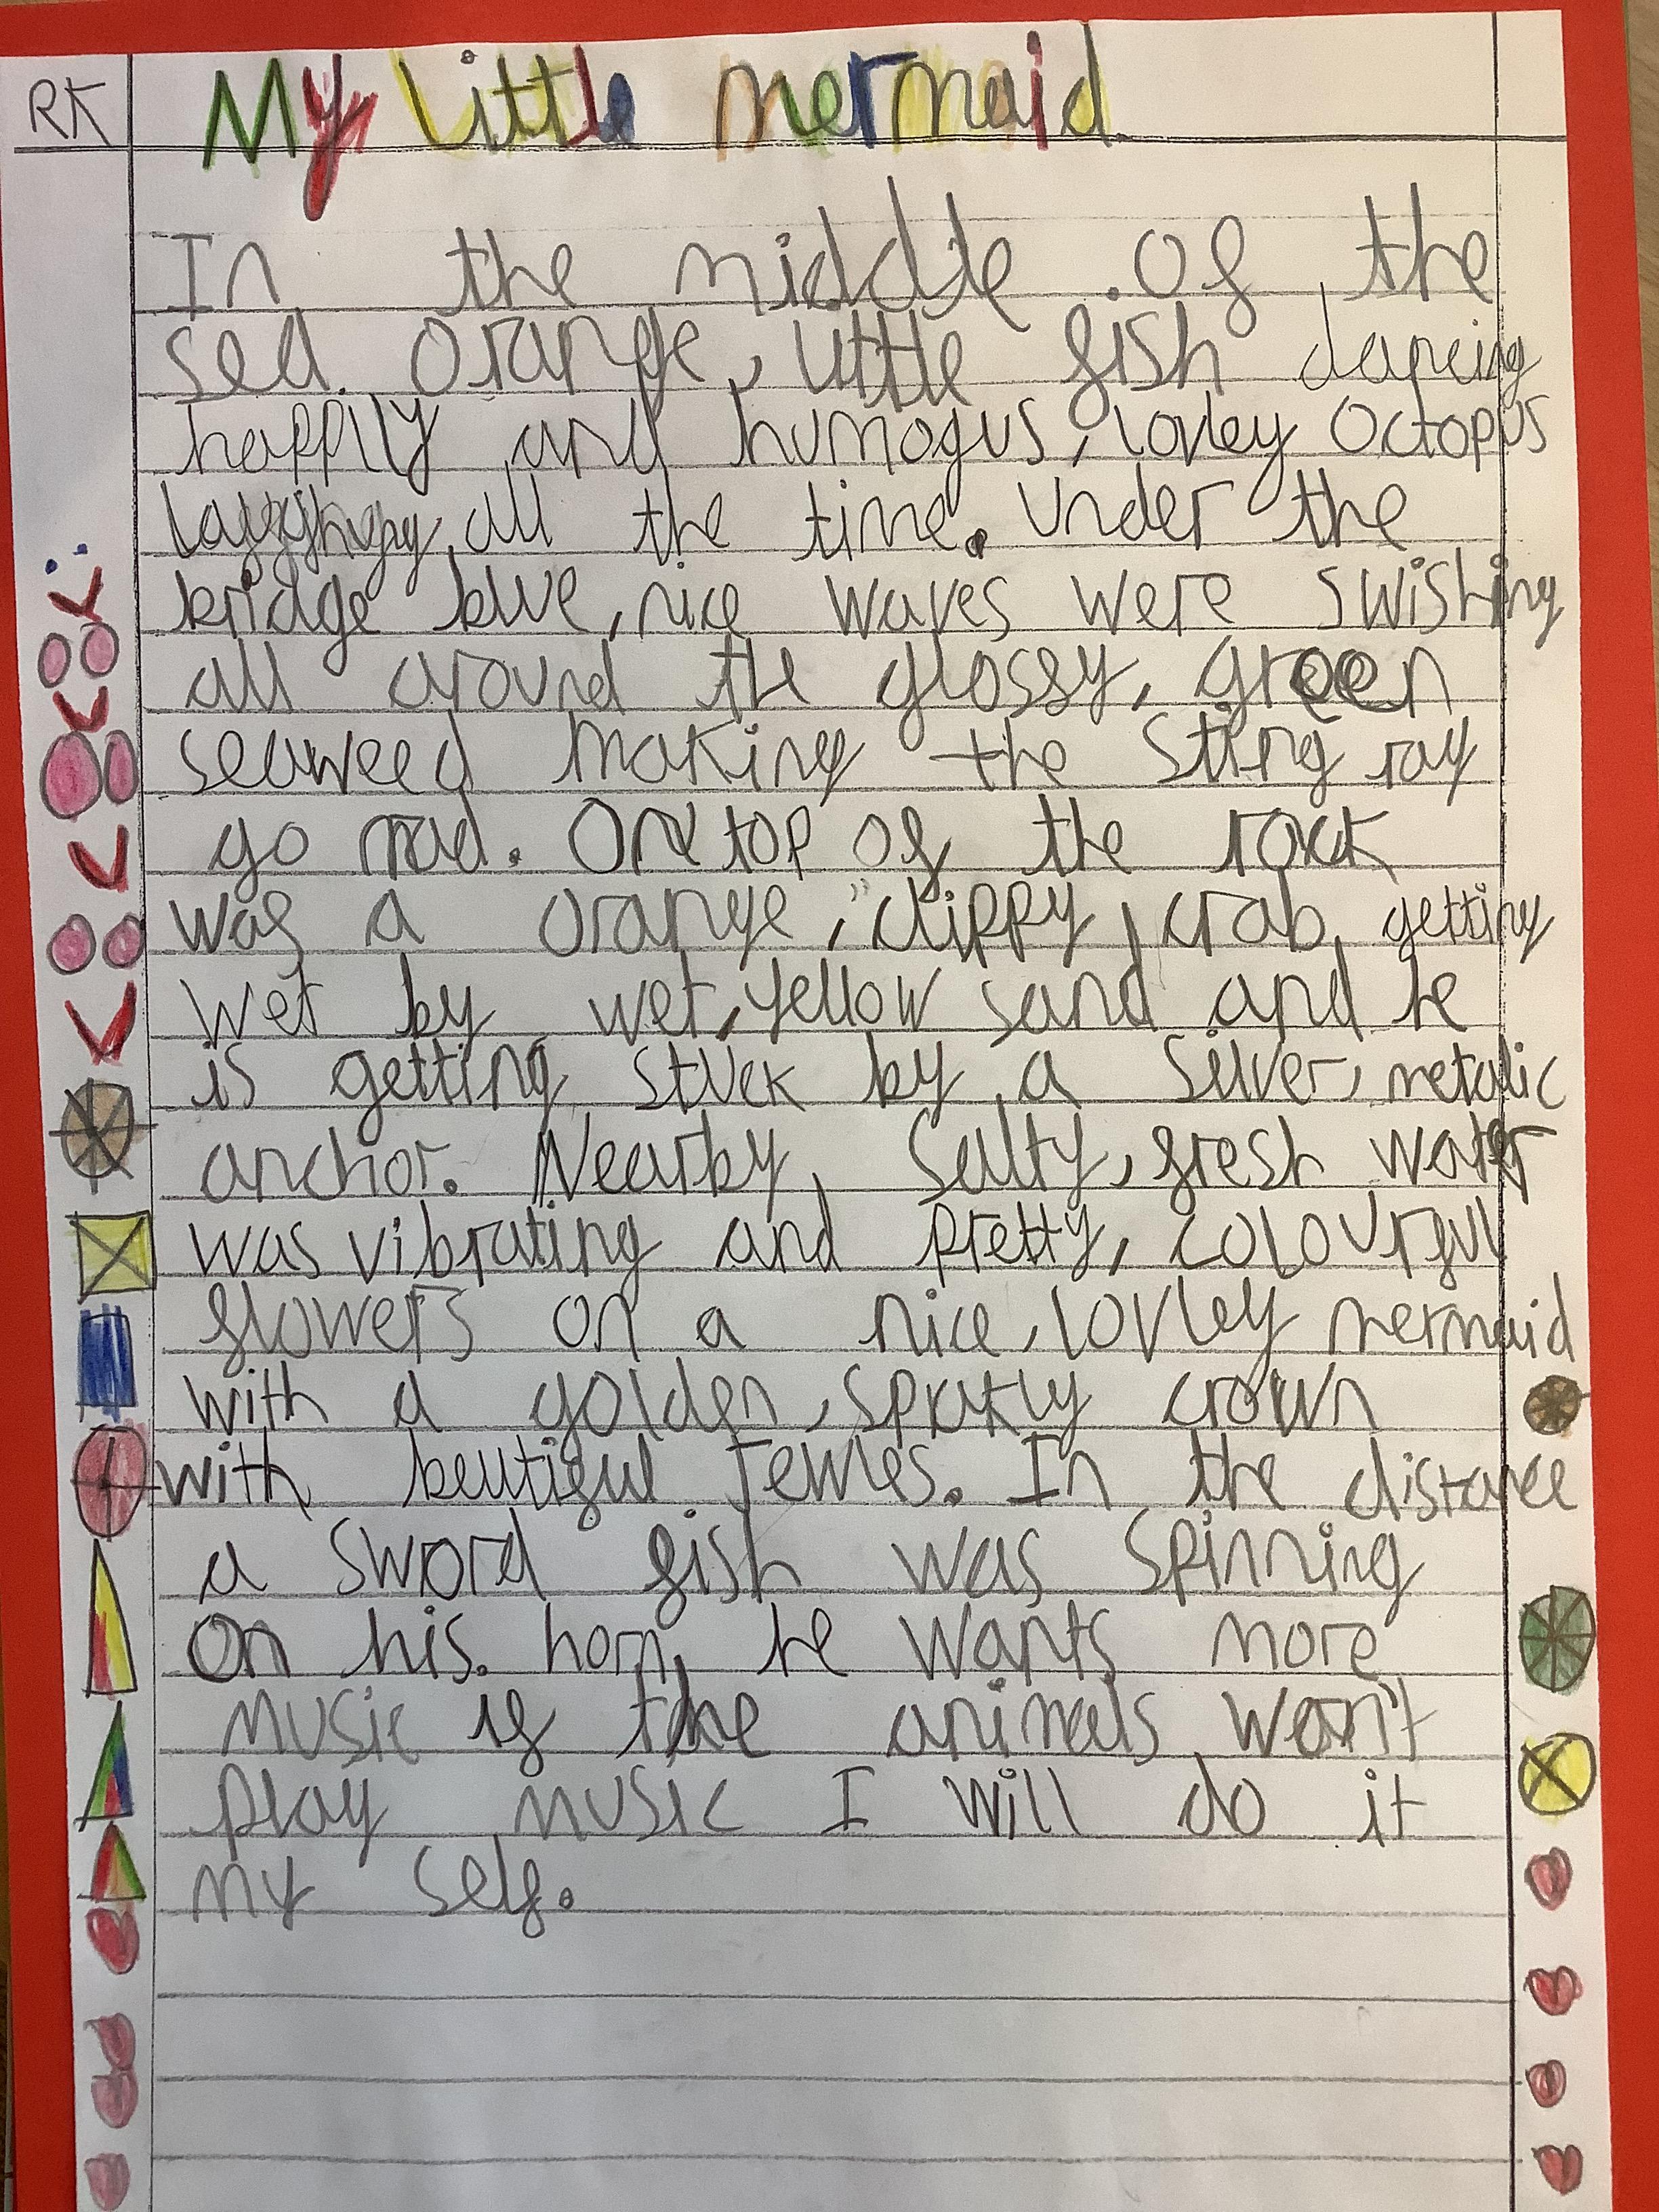 RK
My little mermaid.
In the middle of the
sea. orange, little fish dancing
happily and humogus, lovley octopus
laughing all the time. Under the
bridge blue, nice waves were swishing
all around the glossy, green
seaweed making the sting ray
go mad. On top of the rock
was a orange, clippy, crab getting
wet by wet, yellow sand and he
is getting stuck by a silver, metalic
anchor. Nearby, salty, fresh water
was vibrating and pretty, colourful
flowers on a nice, lovley mermaid
with a golden, sprakly crown
with beutiful Jewles. In the distance
a sword fish was spinning
on his. horn, he wants more
music if the animals won't
play music I will do it
my self.